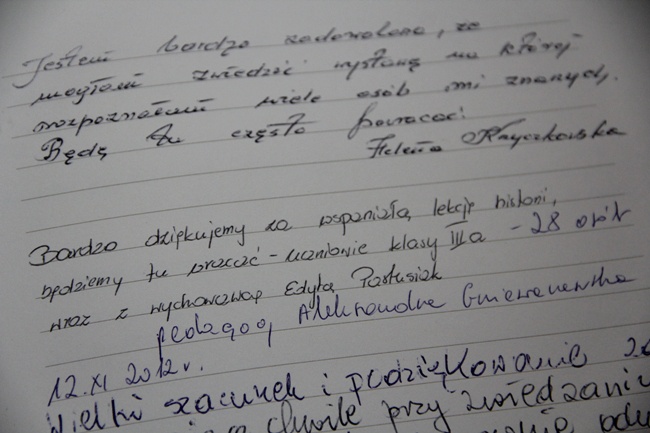 Jestem bardzo zadowolona, że
mogłam zwiedzić wystawę na której
rozpoznałam wiele osób mi znanych.
Będę tu często powracać!
Helena
Bardzo dziękujemy za wspaniałą lekcję historii,
będziemy tu wracać - uczniowie klasy IIIa - 28 osób
wraz z wychowawcą Edytą Pastusiak
pedagog Aleksandra
12.XI 2012r.
Wielki szacunek i podziękowanie za
chwile przy zwiedzaniu